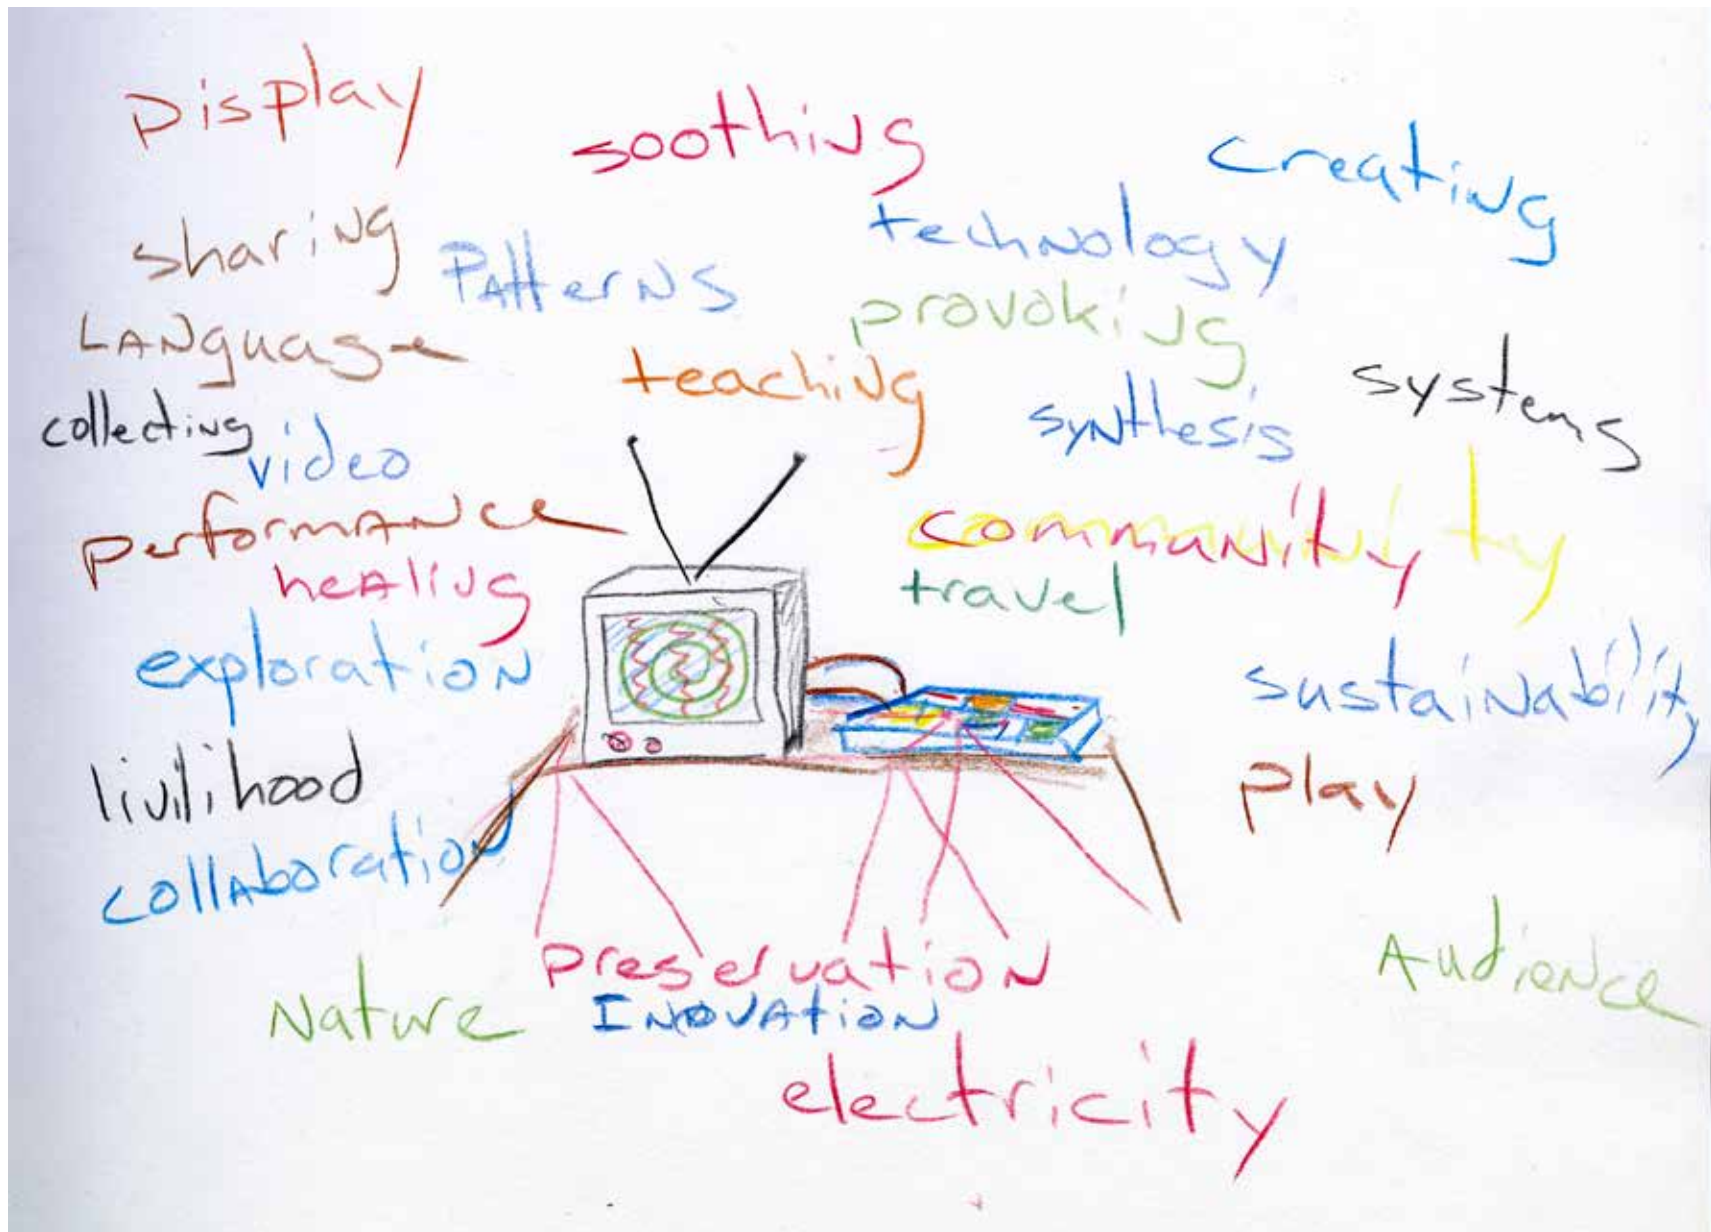 Display
soothing
creating
sharing
Patterns
technology
provoking
Language
teaching
collecting
synthesis
systems
video
performance
community
healing
travel
exploration
sustainability
livilihood
play
collaboration
preservation
Audience
Nature
Inovation
electricity